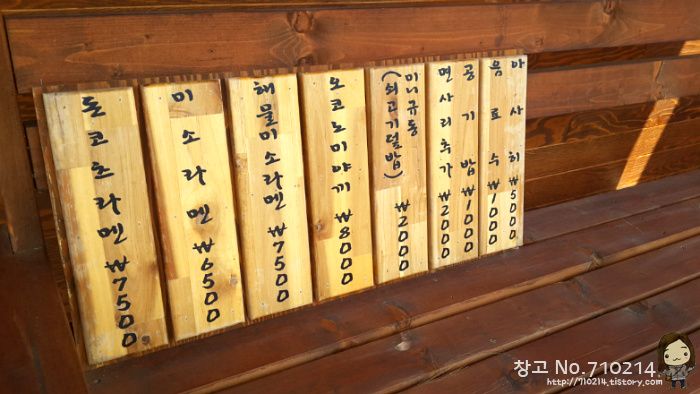 돈코츠라멘 ₩7500
미소라멘 ₩6500
해물미소라멘 ₩7500
오코노미야끼 ₩8000
미니규동
(쇠고기덮밥) ₩2000
면사리추가 ₩2000
공기밥 ₩1000
음료수 ₩1000
아사히 ₩5000
창고 No.710214
http://710214.tistory.com